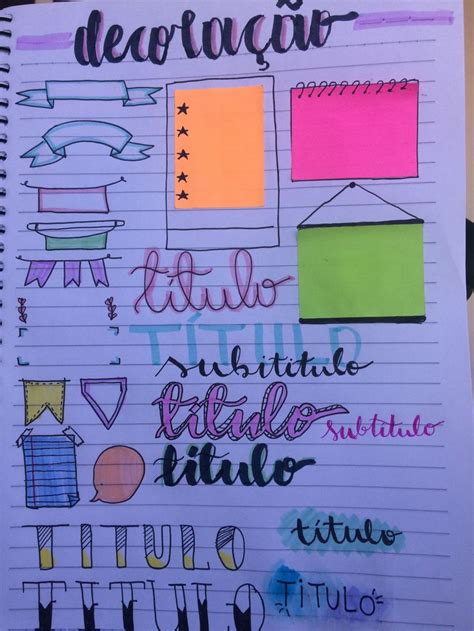 decoração
título
TÍTULO
subititulo
título
subtitulo
título
TITULO
título
TITULO
TITULO